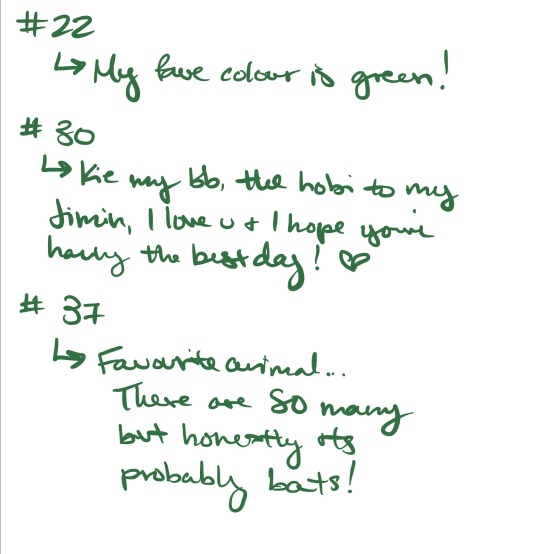 #22
↳ My fave colour is green!
# 30
↳ Kie my bb, the hobi to my
Jimin, I love u + I hope you're
having the best day! ♡
# 37
↳ Favourite animal...
There are SO many
but honestly its
probably bats!